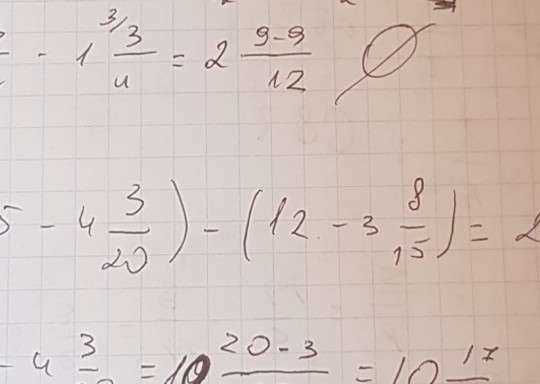 - 1 3/ 3/4 = 2 9-9/12 ∅
5 - 4 3/20) - (12 - 3 8/15) = 2
- 4 3 = 10 20-3 = 10 17